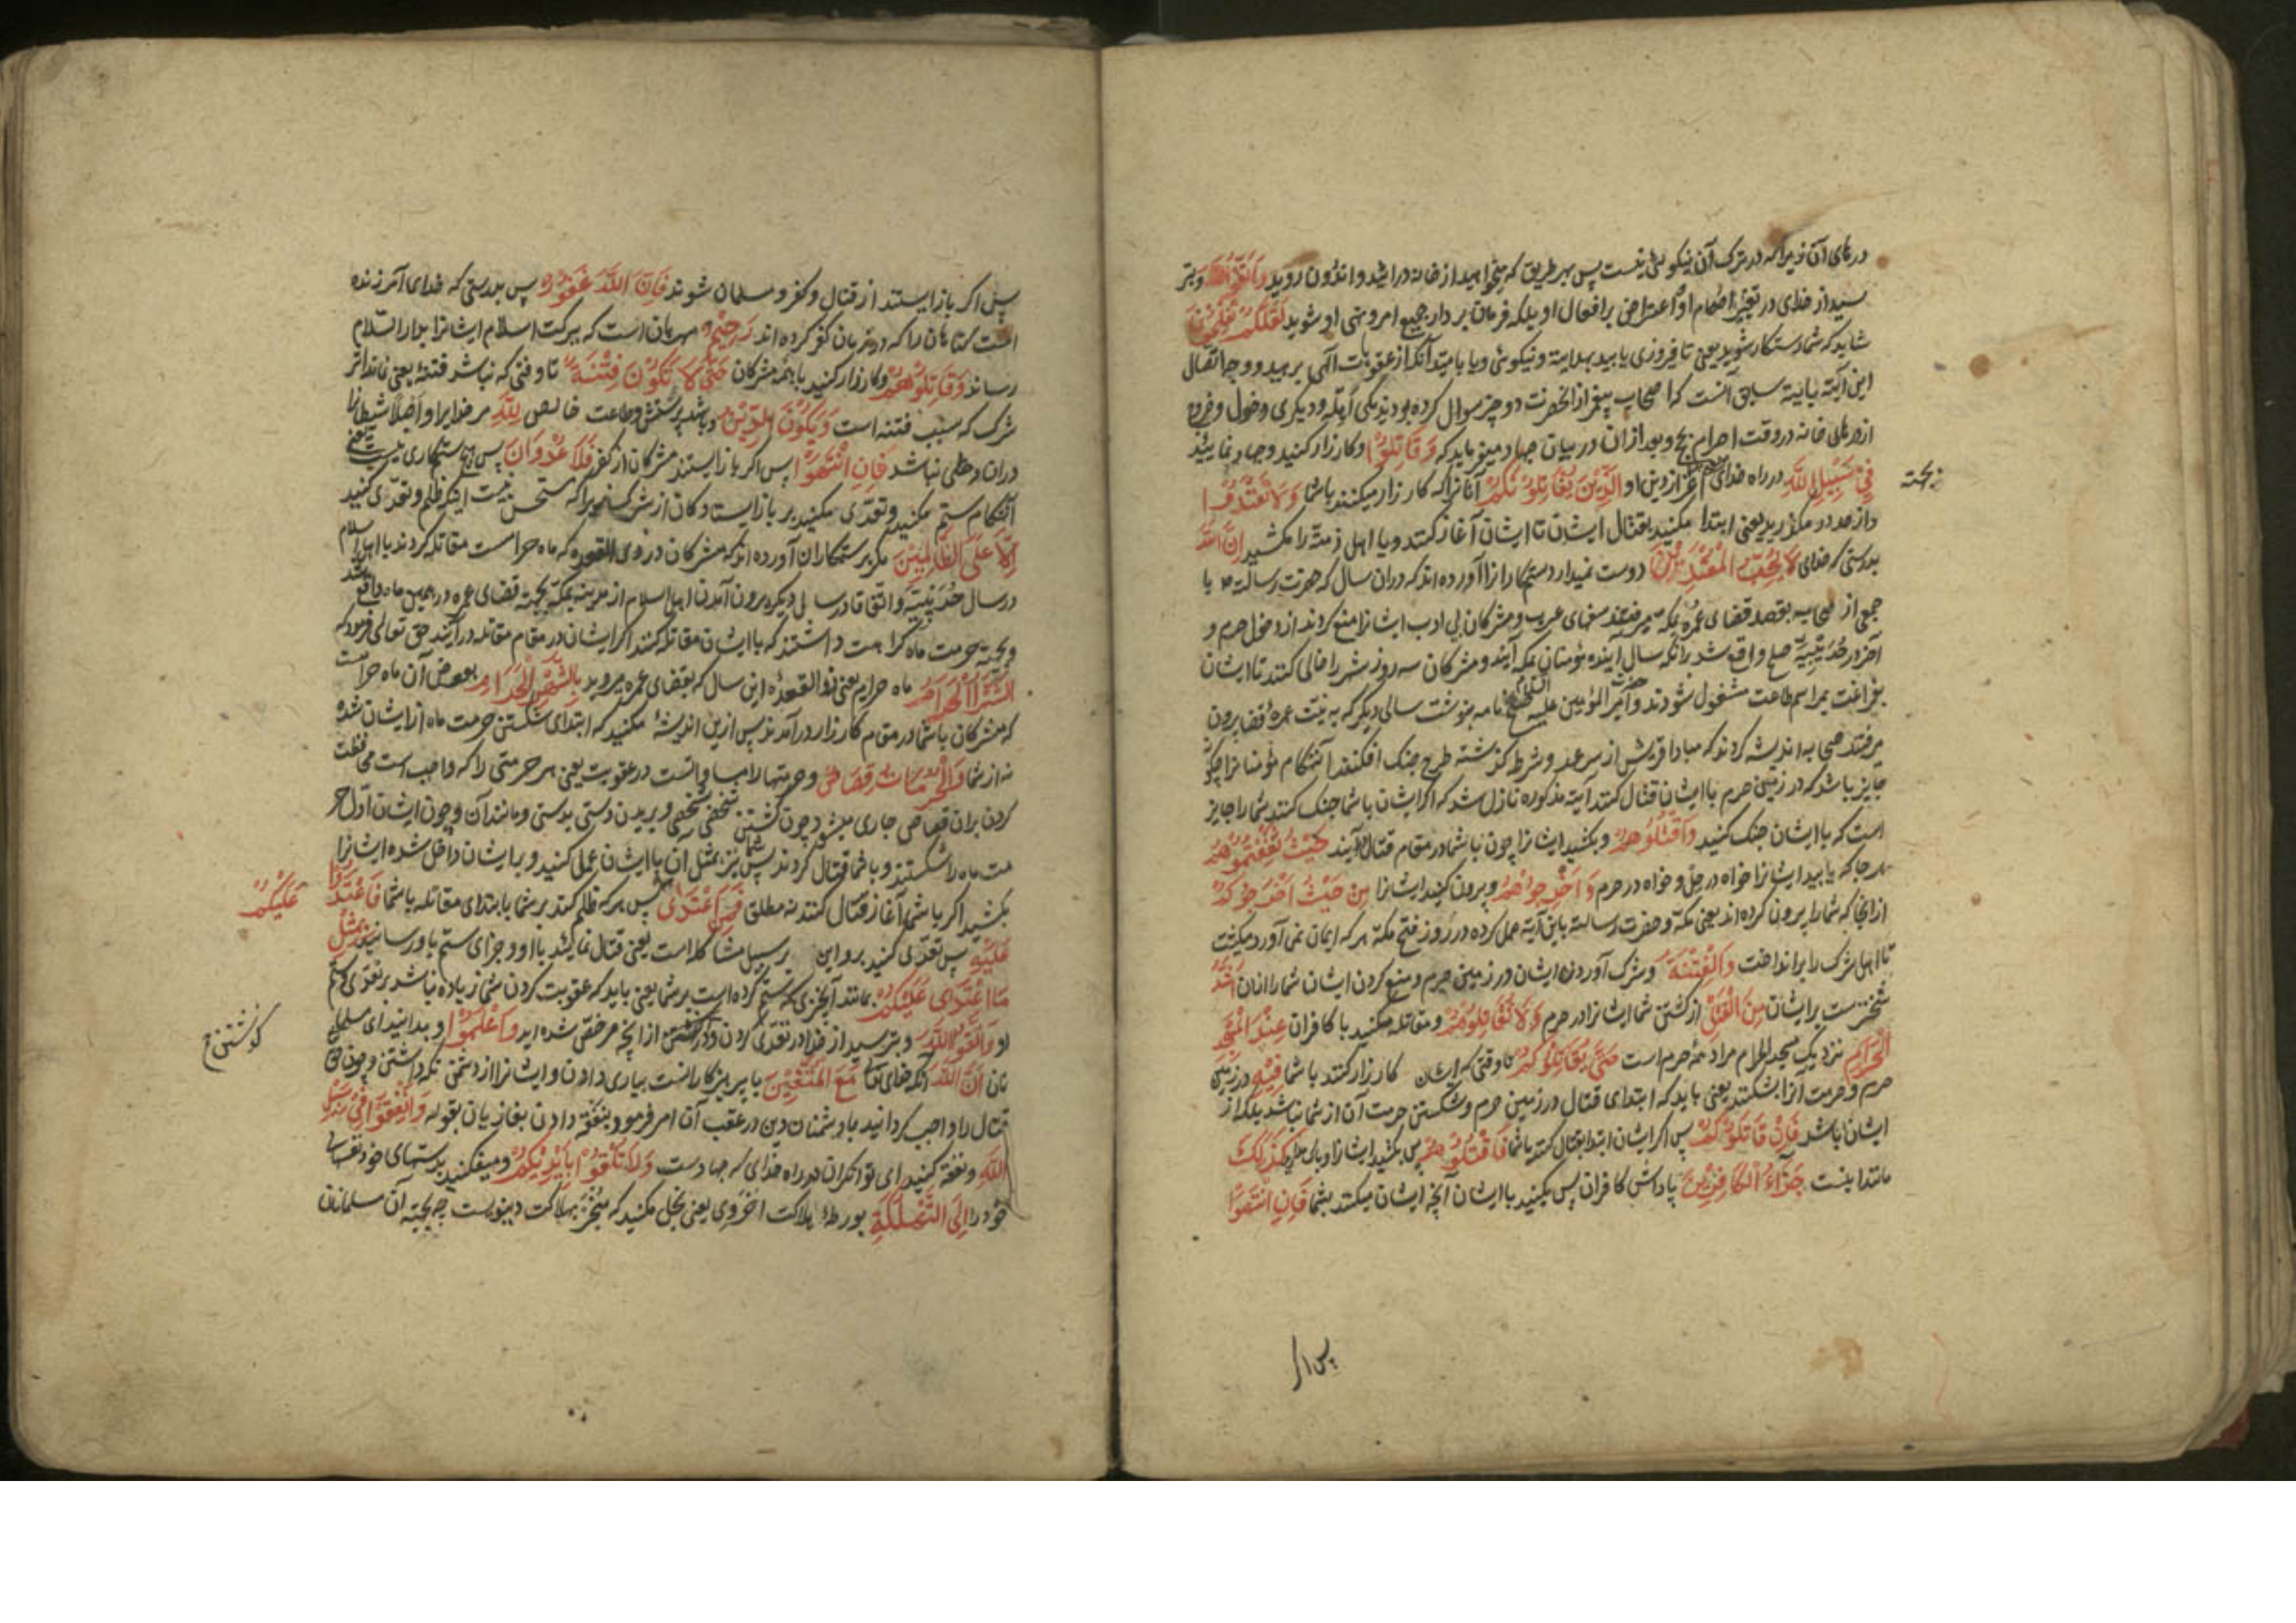 درهای آن زیرا که در ترک آن نیکویی نیست پس بهر طریق که میخواهید از خانه در آئید و اندرون روید وَاتَّقُوا اللَّهَ و بتر
سید از خدای در تغییر احکام او و اعتراض بر افعال او بلکه فرمان بردار جمیع امر و نهی او شوید لَعَلَّكُمْ تُفْلِحُونَ
شاید که شما رستکار شوید یعنی تا فیروزی یابید بهدایت و نیکوئی و یا بامید آنکه از عقوبات الهی برهید و وجه اتصال
این آیة بآیة سابق آنست که اصحاب پیغمبر از آنحضرت دو چیز سوال کرده بودند یکی اهله و دیکری دخول و خروج
از درهای خانه در وقت احرام بحج و بعد از آن در بیان جهاد میفرماید که وَقَاتِلُوا و کارزار کنید و جهاد نمایید
فِي سَبِيلِ اللَّهِ در راه خدای از دین او الَّذِينَ يُقَاتِلُونَكُمْ آنانرا که کارزار میکنند باشما وَلَا تَعْتَدُوا
بجهة
و از حد در مگذرید یعنی ابتدا مکنید بقتال ایشان تا ایشان آغاز کنند و یا اهل ذمة را مکشید إِنَّ اللَّهَ
بدرستی که خدای لَا يُحِبُّ الْمُعْتَدِينَ دوست نمیدارد ستمکارانرا آورده اند که دران سال که حضرت رسالة ص با
جمعی از صحابه بقصد قضای عمره بمکه میرفتند سفهای عرب و مشرکان بی ادب ایشانرا منع کردند از دخول حرم و
آخر در حُدَیبیّه صلح واقع شد بر آنکه سال آینده مؤمنان بمکه آیند و مشرکان سه روز شهر را خالی کنند تا ایشان
بفراغت بمراسم طاعت مشغول شوند و حضرت امیر المؤمنین علیه السلام صلح نامه بنوشت سالی دیگر که به نیت عمرهٔ قضا بیرون
میرفتند صحابه اندیشه کردند که مبادا قریش از سر عهد و شرط گذشته طرح جنک افکنند آنهنکام مؤمنانرا چگونه
جایز باشد که در زمین حرم با ایشان قتال کنند آیة مذکوره نازل شد که اگر ایشان با شما جنک کنند شما را جایز
است که با ایشان جنک کنید وَاقْتُلُوهُمْ و بکشید ایشانرا چون با شما در مقام قتال آیند حَيْثُ ثَقِفْتُمُوهُمْ
هر جا که یابید ایشانرا خواه در حلّ و خواه در حرم وَأَخْرِجُوهُمْ و بیرون کنید ایشانرا مِنْ حَيْثُ أَخْرَجُوكُمْ
از انجا که شما را بیرون کرده اند یعنی مکّه و حضرت رسالة باین آیة عمل کرده در روز فتح مکّة هر که ایمان نمی آورد میکشت
تا اهل شرک را برانداخت وَالْفِتْنَةُ و شرک آوردن ایشان در زمین حرم و منع کردن ایشان شما را از آن أَشَدُّ
سختترست بر ایشان مِنَ الْقَتْلِ از کشتن شما ایشانرا در حرم وَلَا تُقَاتِلُوهُمْ و مقاتله مکنید با کافران عِنْدَ الْمَسْجِدِ
الْحَرَامِ نزدیک مسجد الحرام مراد همهٔ حرم است حَتَّى يُقَاتِلُوكُمْ تا وقتی که ایشان کارزار کنند با شما فِيهِ در زمین
حرم و حرمت آنرا بشکنند یعنی باید که ابتدای قتال در زمین حرم و شکستن حرمت آن از شما نباشد بلکه از
ایشان باشد فَإِنْ قَاتَلُوكُمْ پس اگر ایشان ابتدا بقتال کنند با شما فَاقْتُلُوهُمْ پس بکشید ایشانرا كَذَلِكَ
مانند اینست جَزَاءُ الْكَافِرِينَ پاداش کافران پس بکنید با ایشان آنچه ایشان میکنند بشما فَإِنِ انْتَهَوْا
پس اگر
پس اگر باز ایستند از قتال و کفر و مسلمان شوند فَإِنَّ اللَّهَ غَفُورٌ پس بدرستی که خدای آمرزنده
است گناهان را که در زمان کفر کرده اند رَحِيمٌ مهربان است که ببرکت اسلام ایشانرا بدار السّلام
رساند وَقَاتِلُوهُمْ و کارزار کنید با همهٔ مشرکان حَتَّى لَا تَكُونَ فِتْنَةٌ تا وقتی که نباشد فتنهٔ یعنی نماند اثر
شرک که سبب فتنه است وَيَكُونَ الدِّينُ و باشد پرستش و طاعت خالص لِلَّهِ مر خدایرا و اصلاً شیطانرا
دران دخلی نباشد فَإِنِ انْتَهَوْا پس اگر باز ایستند مشرکان از کفر فَلَا عُدْوَانَ پس هیچ ستمکاری نیست یعنی
آنهنکام ستم مکنید و تعدّی مکنید بر باز ایستادکان از شرک زیرا که مستحق نیست اینکه ظلم و تعدّی کنید
إِلَّا عَلَى الظَّالِمِينَ مگر بر ستمکاران آورده اند که مشرکان در ذی القعده که ماه حرامست مقاتله کردند با اهل اسلام
در سال حُدَیبیّة و اتفاقا در سالی دیکر بیرون آمدن اهل اسلام از مدینه بمکّه بجهة قضای عمره در همین ماه واقع شد
و بجهة حرمت ماه کراهت داشتند که با ایشان مقاتله کنند اگر ایشان در مقام مقاتله در آیند حق تعالی فرمود که
الشَّهْرُ الْحَرَامُ ماه حرام یعنی ذو القعدهٔ این سال که بقضای عمره میروید بِالشَّهْرِ الْحَرَامِ بعوض آن ماه حرامست
که مشرکان با شما در مقام کارزار در آمدند پس ازین اندیشهٔ مکنید که ابتدای شکستن حرمت ماه از ایشان شده
نه از شما وَالْحُرُمَاتُ قِصَاصٌ و حرمتها را مساواتست در عقوبت یعنی هر حرمتی را که واجب است محافظت
کردن بران قصاص جاری میشود چون کشتن شخصی بشخصی و بریدن دستی بدستی و مانند آن و چون ایشان اوّل حر
مت ماه را شکستند و با شما قتال کردند پس شما نیز بمثل آن با ایشان عمل کنید و بر ایشان داخل شده ایشانرا
بکشید اگر با شما آغاز قتال کنند نه مطلق فَمَنِ اعْتَدَى پس هر که ظلم کند بر شما بابتدای مقاتله با شما فَاعْتَدُوا
عَلَيْكُمْ
عَلَيْهِ پس تعدّی کنید برو این بر سبیل مشاکله است یعنی قتال نمائید با او و جزای ستم باو رسانید بِمِثْلِ
مَا اعْتَدَى عَلَيْكُمْ مانند آنچیزی که ستم کرده است بر شما یعنی باید که عقوبت کردن شما زیاده نباشد بر تعدّی و ستم
او وَاتَّقُوا اللَّهَ و بترسید از خدا در تعدّی کردن و در گذشتن از آنچه مرخّص شده اید وَاعْلَمُوا و بدانید ای مسلما
گذشتن
نان أَنَّ اللَّهَ آنکه خدای مَعَ الْمُتَّقِينَ با پرهیزکارانست بیاری دادن و ایشانرا از دشمن نگه داشتن و چون
قتال را واجب گردانید با دشمنان دین در عقب آن امر فرمود بنفقه دادن بغازیان بقوله وَأَنْفِقُوا فِي سَبِيلِ
اللَّهِ و نفقه کنید ای توانکران در راه خدای که جهادست وَلَا تُلْقُوا بِأَيْدِيكُمْ و میفکنید بدستهای خود نفسهای
خود را إِلَى التَّهْلُكَةِ بورطهٔ هلاکت اخروی یعنی بخل مکنید که منجرّ بهلاکت دنیویست چه بجهة آن مسلمانان